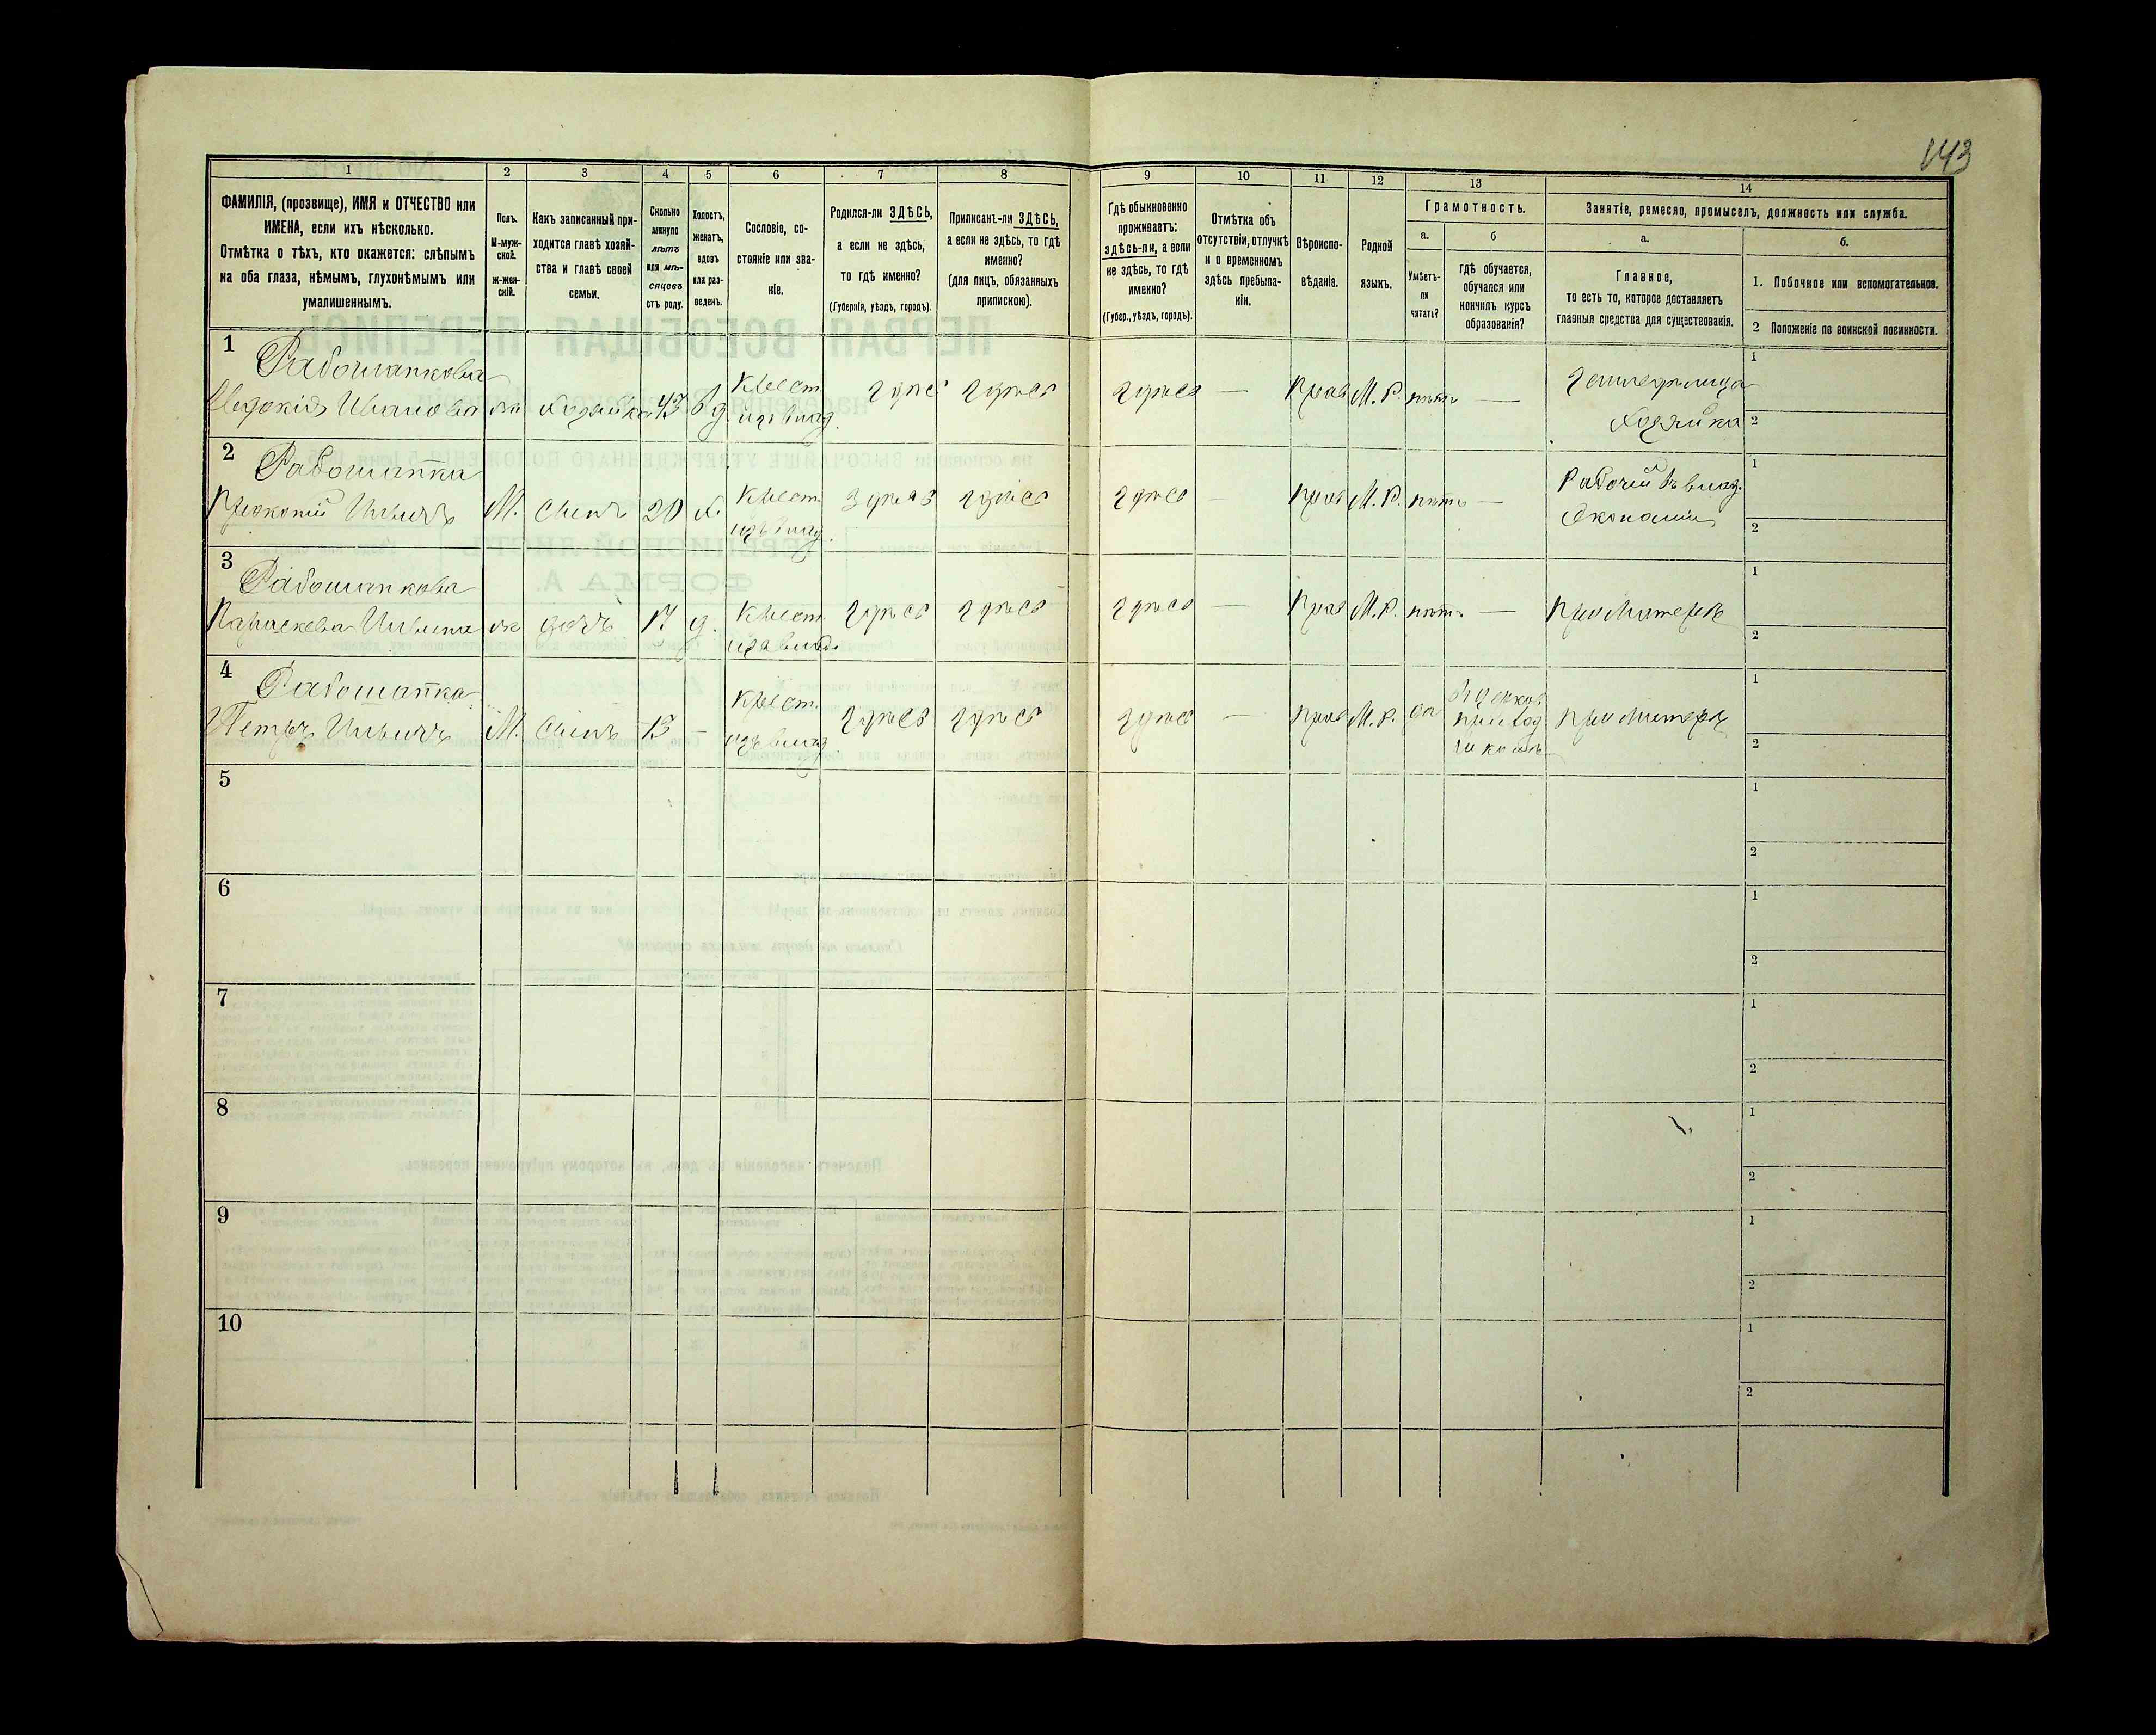 143
1 2 3 4 5 6 7 8 9 10 11 12 13 14
ФАМИЛІЯ, (прозвище), ИМЯ и ОТЧЕСТВО или
ИМЕНА, если ихъ нѣсколько.
Отмѣтка о тѣхъ, кто окажется: слѣпымъ
на оба глаза, нѣмымъ, глухонѣмымъ или
умалишеннымъ.
Полъ.
М-муж-
ской.
ж-жен-
скій.
Какъ записанный при-
ходится главѣ хозяй-
ства и главѣ своей
семьи.
Сколько
минуло
лѣтъ
или мѣ-
сяцевъ
отъ роду.
Холостъ,
женатъ,
вдовъ
или раз-
веденъ.
Сословіе, со-
стояніе или зва-
ніе.
Родился-ли ЗДѢСЬ,
а если не здѣсь,
то гдѣ именно?
(Губернія, уѣздъ, городъ).
Приписанъ-ли ЗДѢСЬ,
а если не здѣсь, то гдѣ
именно?
(для лицъ, обязанныхъ
припискою).
Гдѣ обыкновенно
проживаетъ:
здѣсь-ли, а если
не здѣсь, то гдѣ
именно?
(Губер., уѣздъ, городъ).
Отмѣтка объ
отсутствіи, отлучкѣ
и о временномъ
здѣсь пребыва-
ніи.
Вѣроиспо-
вѣданіе.
Родной
языкъ.
Грамотность.
а.
Умѣетъ-
ли
читать?
б
гдѣ обучается,
обучался или
кончилъ курсъ
образованія?
Занятіе, ремесло, промыселъ, должность или служба.
а.
Главное,
то есть то, которое доставляетъ
главныя средства для существованія.
б.
1. Побочное или вспомогательное.
2 Положеніе по воинской повинности.
1
Рабошапкова
Евдокія Иванова ж Хозяйка 43 вд. Крест. изъ влад. здѣсь здѣсь здѣсь — Прав М. Р. нѣтъ — Земледѣлица
Хозяйка
1
2
2
Рабошапка
Прокопій Ильичъ М. Сынъ 20 х. Крест. изъ влад. здѣсь здѣсь здѣсь — Прав М. Р. нѣтъ — Рабочій въ влад.
Экономіи
1
2
3
Рабошапкова
Параскева Ильина ж дочь 17 д. Крест. изъ влад. здѣсь здѣсь здѣсь — Прав М. Р. нѣтъ — При матери
1
2
4
Рабошапка
Петръ Ильичъ М. Сынъ 13 — Крест. изъ влад. здѣсь здѣсь здѣсь — Прав М. Р. да
въ церков
приход
школѣ
При матери
1
2
5
1
2
6
1
2
7
1
2
8
1
2
9
1
2
10
1
2